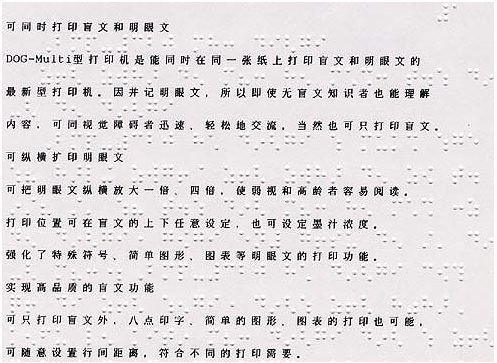 可同时打印盲文和明眼文
DOG-Multi型打印机是能同时在同一张纸上打印盲文和明眼文的
最新型打印机。因并记明眼文，所以即使无盲文知识者也能理解
内容，可同视觉障碍者迅速、轻松地交流，当然也可只打印盲文。
可纵横扩印明眼文
可把明眼文纵横放大一倍、四倍，使弱视和高龄者容易阅读。
打印位置可在盲文的上下任意设定，也可设定墨汁浓度。
强化了特殊符号、简单图形、图表等明眼文的打印功能。
实现高品质的盲文功能
可只打印盲文外，八点印字、简单的图形、图表的打印也可能，
可随意设置行间距离，符合不同的打印需要。